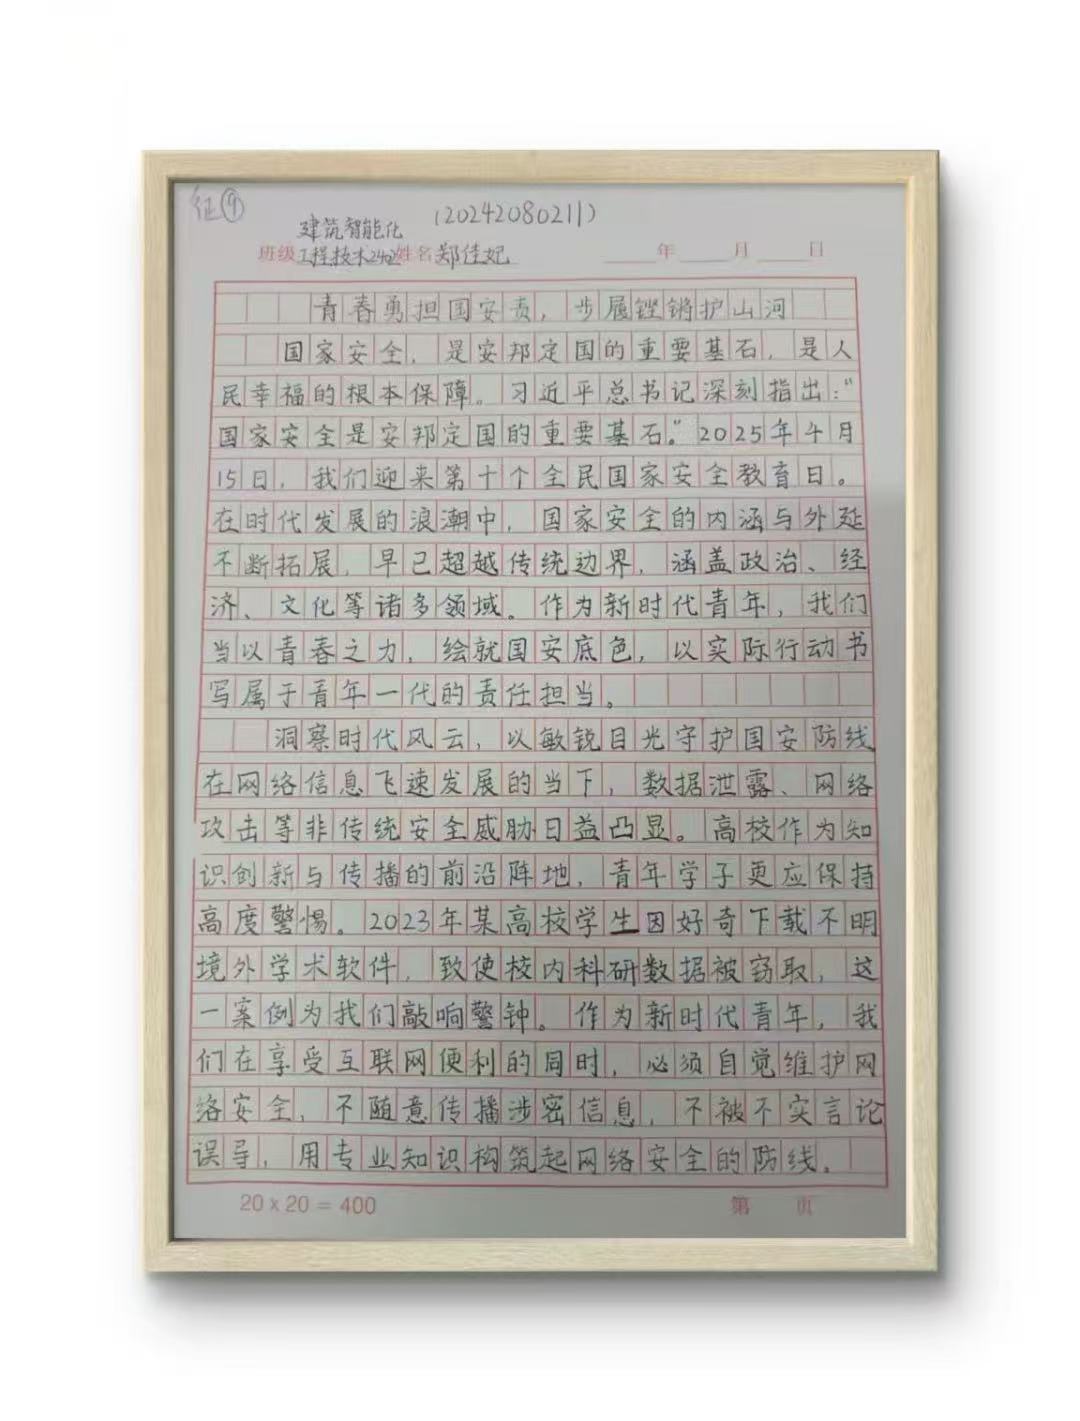 征⑨
(20242080211)
建筑智能化
班级工程技术2402姓名郑佳妃 年 月 日
青春勇担国安责，步履铿锵护山河
国家安全，是安邦定国的重要基石，是人
民幸福的根本保障。习近平总书记深刻指出：“
国家安全是安邦定国的重要基石。”2025年4月
15日，我们迎来第十个全民国家安全教育日。
在时代发展的浪潮中，国家安全的内涵与外延
不断拓展，早已超越传统边界，涵盖政治、经
济、文化等诸多领域。作为新时代青年，我们
当以青春之力，绘就国安底色，以实际行动书
写属于青年一代的责任担当。
洞察时代风云，以敏锐目光守护国安防线
在网络信息飞速发展的当下，数据泄露、网络
攻击等非传统安全威胁日益凸显。高校作为知
识创新与传播的前沿阵地，青年学子更应保持
高度警惕。2023年某高校学生因好奇下载不明
境外学术软件，致使校内科研数据被窃取，这
一案例为我们敲响警钟。作为新时代青年，我
们在享受互联网便利的同时，必须自觉维护网
络安全，不随意传播涉密信息，不被不实言论
误导，用专业知识构筑起网络安全的防线。
20×20=400 第 页